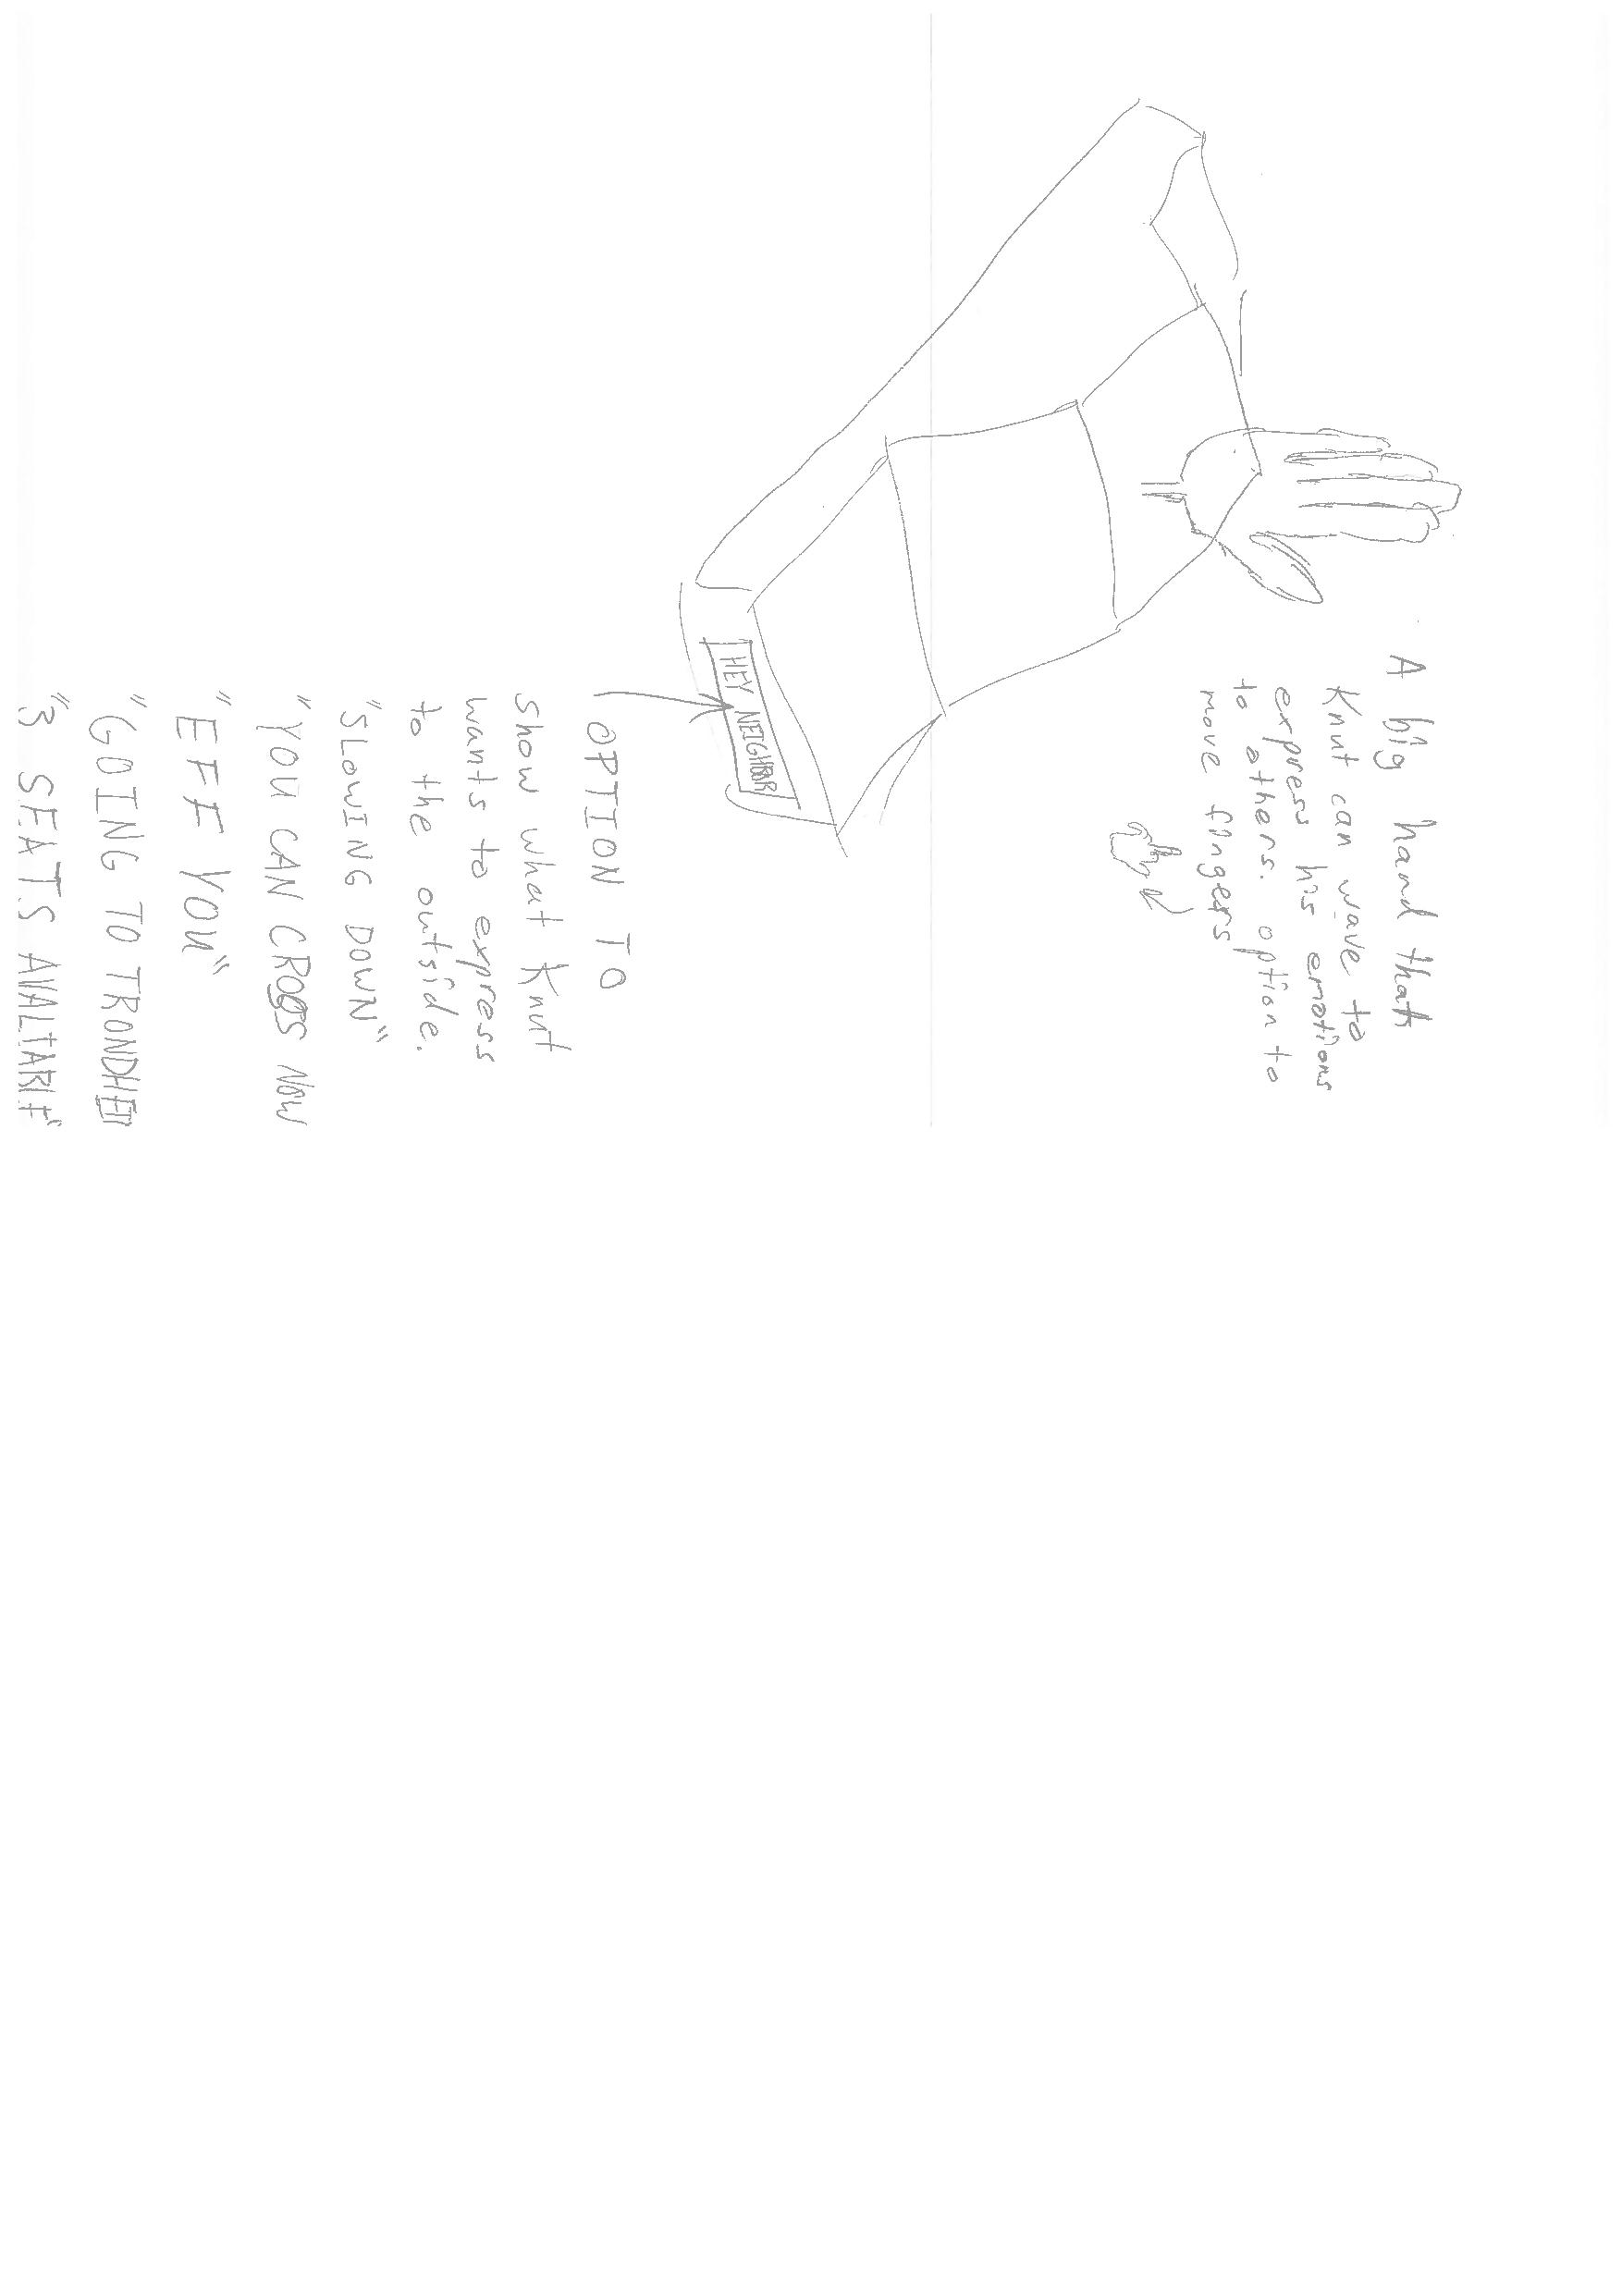 A big hand that
Knut can wave to
express his emotions
to others. option to
move fingers
HEY NEIGHBOR
OPTION TO
show what Knut
wants to express
to the outside.
"SLOWING DOWN"
"YOU CAN CROSS NOW
"EFF YOU"
"GOING TO
"3 SEATS AVALIABLE"